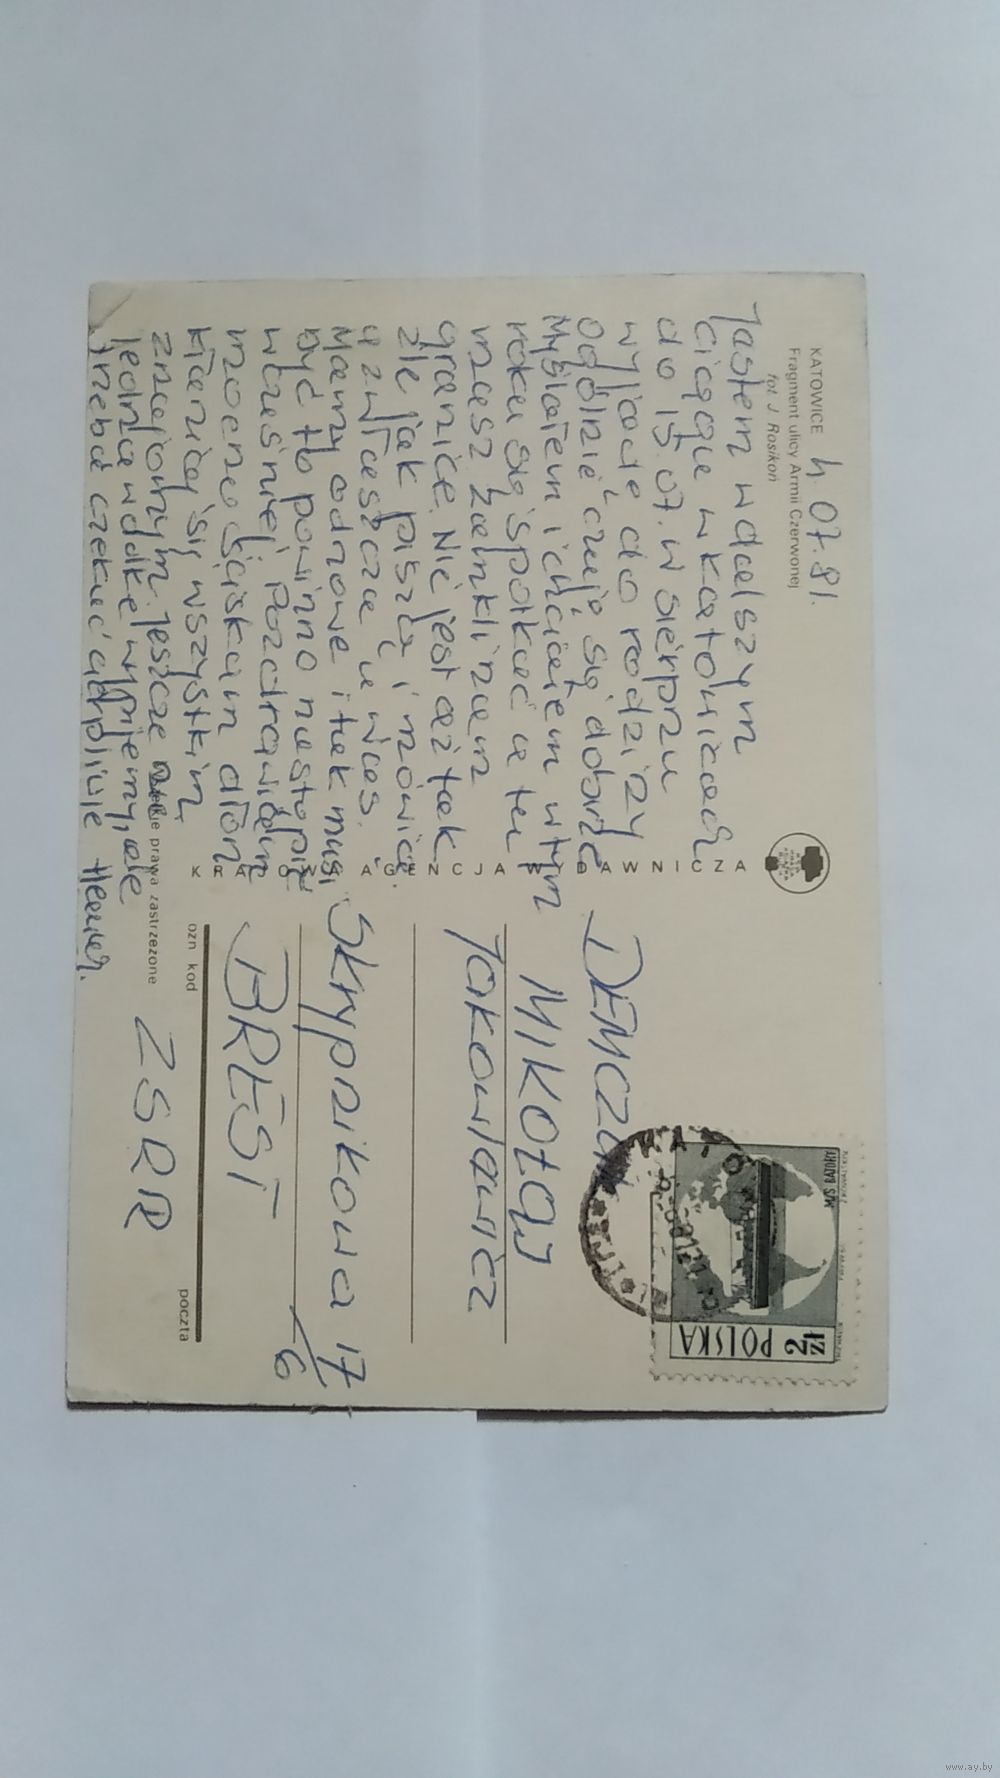 KATOWICE
Fragment ulicy Armii Czerwonej
fot. J. Rosikoń
4.07.81.
Jastem w dalszym
ciągu w Katowicach
do 15.07. w sierpnu
wyjadę do rodziny
Ogólnie czuję się dobrze
Myślałem i chciałem w tym
roku się spotkać a tu
masz zamkli nam
granice. Nie jest aż tak
źle jak piszą i mówicie
a zwłaszcza u was.
Mamy odnowe i tak musi
być to powinno nastąpić
wcześniej. Pozdrawiam
mocno ściskam dłoń
kłaniaj się wszystkim
znajomym. Jeszcze nie
jedna wódkę wypijemy, ale
trzeba czekać cierpliwie Henryk.
KRAJOWA AGENCJA WYDAWNICZA
prawa zastrzeżone
MIKOŁAJ
Jakowlawicz
Skrypnikowa 17/6
BREST
ozn kod
poczta
ZSRR
M/S BATORY
POLSKA 2 ZŁ
www.ay.by